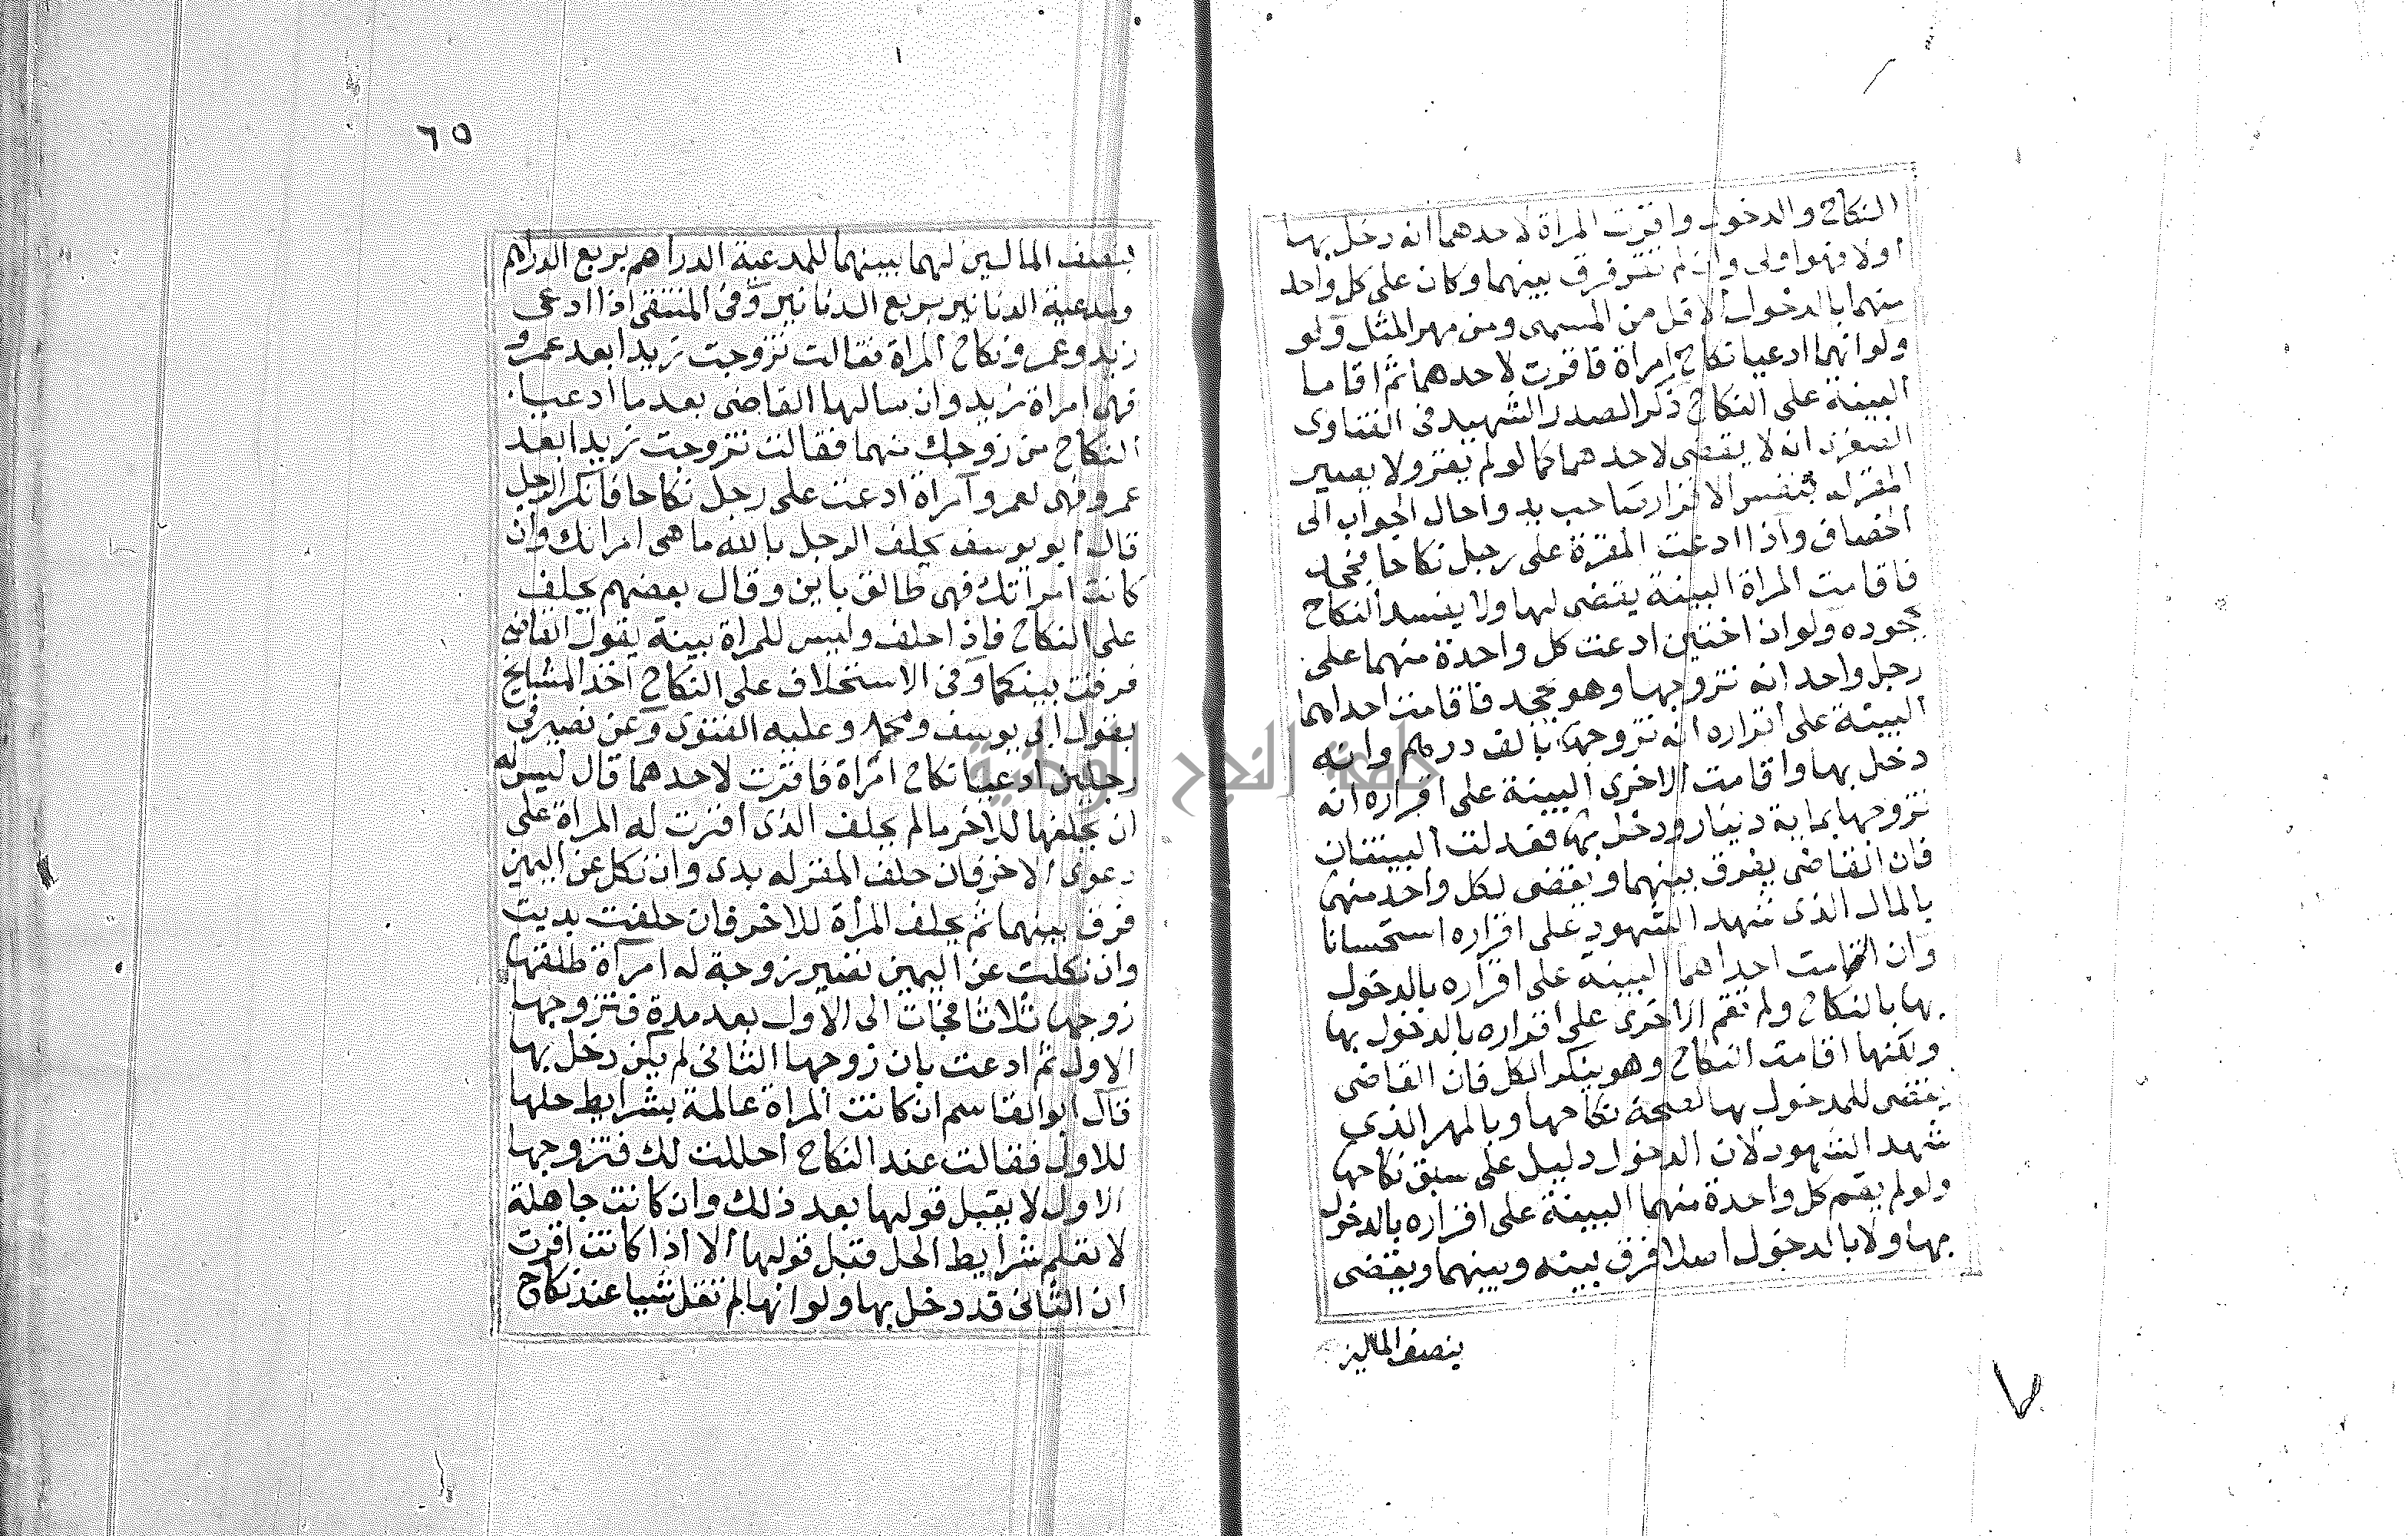 النكاح والدخول واقرت المراة لاحدهما انه دخل بها
اولا فهو اولى وان لم تقر فرق بينهما وكان على كل واحد
منهما بالدخول الاقل من المسمى ومن مهر المثل ولو
ولو انهما ادعيا نكاح امراة فاقرت لاحدهما ثم اقاما
البينة على النكاح ذكر الصدر الشهيد فى الفتاوى
انه لا يقضى لاحدهما كما لو لم يقر ولا يصير
المقر له بنفس الاقرار صاحب يد واحال الجواب الى
الخصاف واذا ادعت المقرة على رجل نكاحا فجحد
فاقامت المراة البينة يقضى لها ولا يفسد النكاح
بجحوده ولو ان اختين ادعت كل واحدة منهما على
رجل واحد انه تزوجها وهو يجحد فاقامت احداهما
البينة على اقراره انه تزوجها بالف درهم وانه
دخل بها واقامت الاخرى البينة على اقراره انه
تزوجها بماية دينار ودخل بها فعدلت البينتان
فان القاضى يفرق بينهما ويقضى لكل واحد منهما
بالمال الذى شهد الشهود على اقراره استحسانا
وان اقامت احداهما البينة على اقراره بالدخول
بها بالنكاح ولم تقم الاخرى على اقراره بالدخول بها
ولكنها اقامت النكاح وهو ينكر الكل فان القاضى
يقضى للمدخول بها لصحة نكاحها وبالمهر الذى
شهد الشهود لان الدخول دليل على سبق نكاحها
ولو لم يقم كل واحدة منهما البينة على اقراره بالدخول
بها ولا بالدخول اصلا فرق بينه وبينهما ويقضى
بنصف المالين
٦٥
بنصف المالين لهما بينهما للمدعية الدراهم بربع الدراهم
ولمدعية الدنانير بربع الدنانير وفى المنتقى اذا ادعى
زيد وعمرو نكاح المراة فقالت تزوجت زيدا بعد عمرو
فهى امراة زيد وان سالها القاضى بعد ما ادعيا
النكاح من زوجك منهما فقالت تزوجت زيدا بعد
عمرو فهى لعمرو امراة ادعت على رجل نكاحا فانكر الرجل
قال ابو يوسف يحلف الرجل بالله ما هى امراتك وان
كانت امراتك فهى طالق باين وقال بعضهم يحلف
على النكاح فاذ احلف وليس للمراة بينة يقول القاضى
فرقت بينكما وفى الاستحلاف على النكاح اخذ المشايخ
بقول ابى يوسف ومحمد وعليه الفتوى وعن نصير فى
رجلين ادعيا نكاح امراة فاقرت لاحدهما قال ليس له
ان يحلفها للاخر مالم يحلف الذى اقرت له المراة على
دعوى الاخر فان حلف المقر له بدى وان نكل عن اليمين
فرق بينهما ثم يحلف المرأة للاخر فان حلفت بديت
وان نكلت عن اليمين تصير زوجة له امرآة طلقها
زوجها ثلاثا فجات الى الاول بعد مدة فتزوجها
الاول ثم ادعت بان زوجها الثانى لم يكن دخل بها
قال ابو القاسم ان كانت المراة عالمة بشرايط حلها
للاول فقالت عند النكاح احللت لك فتزوجها
الاول لا يقبل قولها بعد ذلك وان كانت جاهلة
لا تعلم شرايط الحل فتبل قولها الا اذا كانت اقرت
ان الثانى قد دخل بها ولو انها لم تقل شيا عند نكاح
جامعة النجاح الوطنية